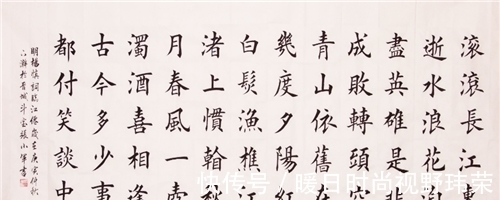 滾滾長江東
逝水浪花
盡英雄是非
成敗轉頭空
青山依舊
幾度夕陽紅
白髮漁樵江
渚上慣
月春風一壺
濁酒喜相逢
古今多少事
都付笑談中
明楊慎詞臨江仙歲庚寅仲秋
於晉城斗室張小軍書
快传号 / 暖日时尚视野玮荣